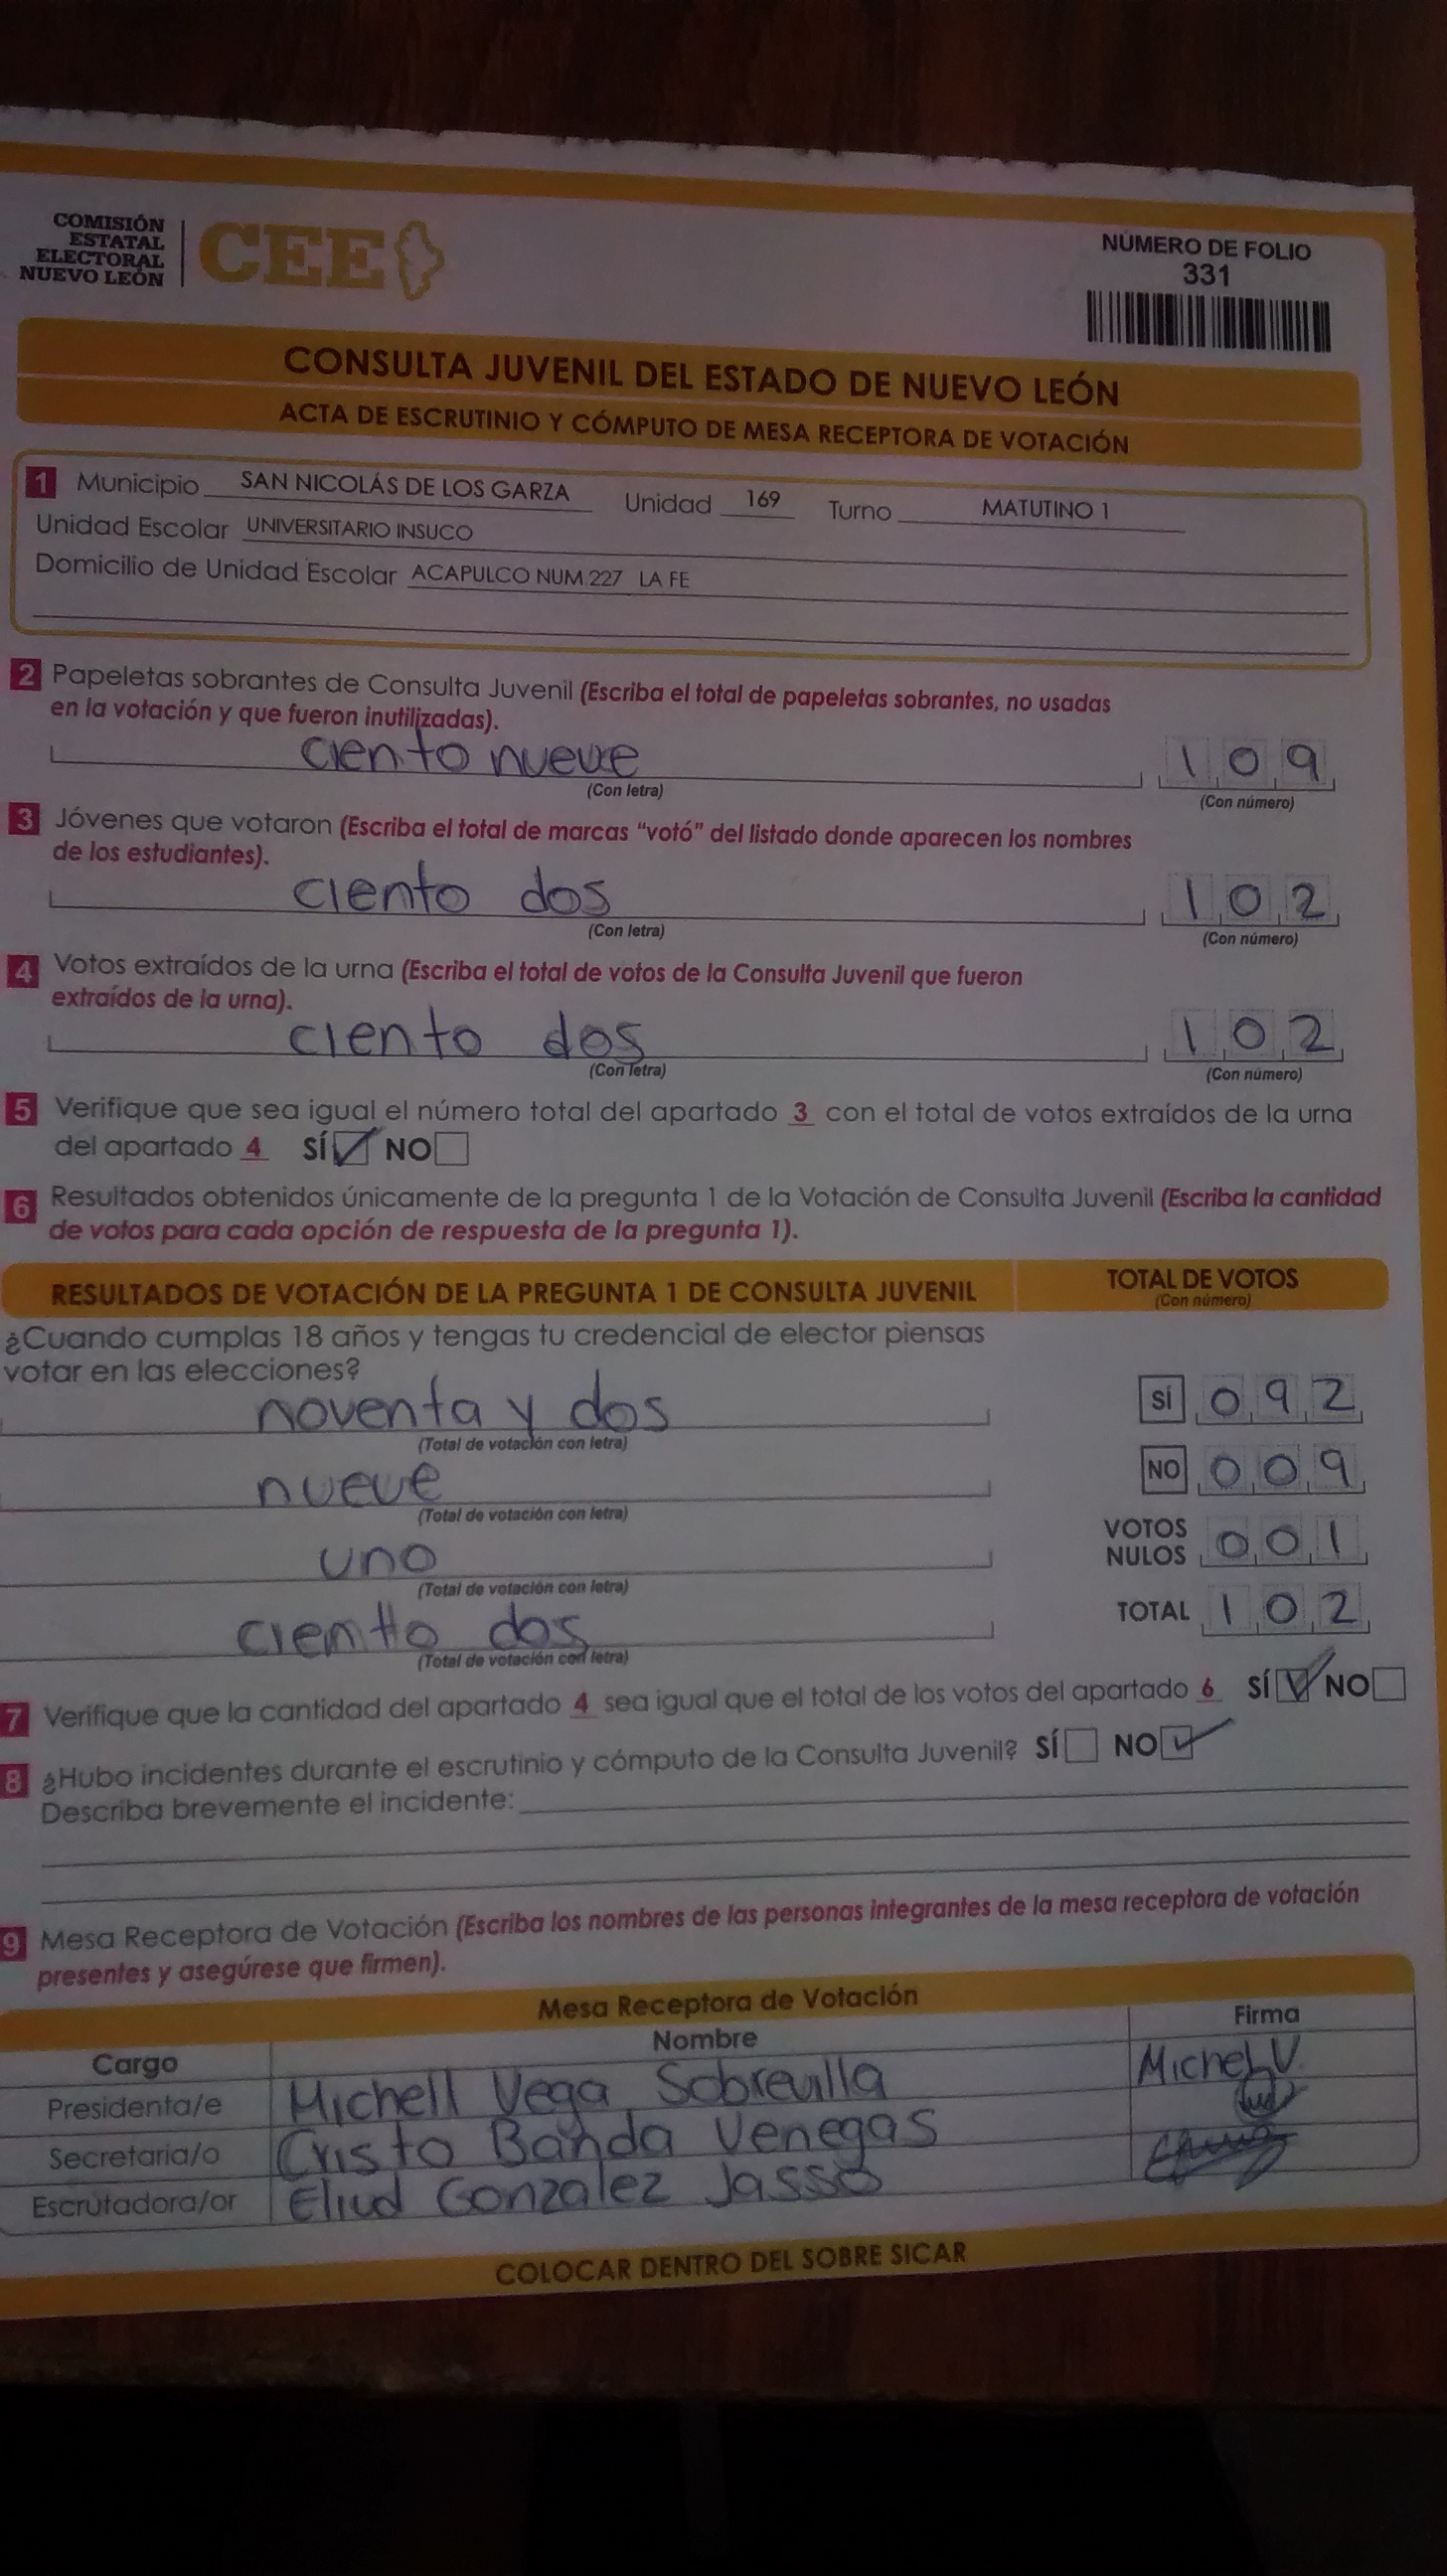 COMISIÓN
ESTATAL
ELECTORAL
NUEVO LEÓN
CEE
NÚMERO DE FOLIO
331
CONSULTA JUVENIL DEL ESTADO DE NUEVO LEÓN
ACTA DE ESCRUTINIO Y CÓMPUTO DE MESA RECEPTORA DE VOTACIÓN
1 Municipio SAN NICOLÁS DE LOS GARZA Unidad 169 Turno MATUTINO 1
Unidad Escolar UNIVERSITARIO INSUCO
Domicilio de Unidad Escolar ACAPULCO NUM.227 LA FE
2 Papeletas sobrantes de Consulta Juvenil (Escriba el total de papeletas sobrantes, no usadas
en la votación y que fueron inutilizadas).
ciento nueve 1 0 9
(Con letra) (Con número)
3 Jóvenes que votaron (Escriba el total de marcas "votó" del listado donde aparecen los nombres
de los estudiantes).
ciento dos 1 0 2
(Con letra) (Con número)
4 Votos extraídos de la urna (Escriba el total de votos de la Consulta Juvenil que fueron
extraídos de la urna).
ciento dos 1 0 2
(Con letra) (Con número)
5 Verifique que sea igual el número total del apartado 3 con el total de votos extraídos de la urna
del apartado 4 SÍ NO
6 Resultados obtenidos únicamente de la pregunta 1 de la Votación de Consulta Juvenil (Escriba la cantidad
de votos para cada opción de respuesta de la pregunta 1).
RESULTADOS DE VOTACIÓN DE LA PREGUNTA 1 DE CONSULTA JUVENIL TOTAL DE VOTOS
(Con número)
¿Cuando cumplas 18 años y tengas tu credencial de elector piensas
votar en las elecciones?
noventa y dos SÍ 0 9 2
(Total de votación con letra)
nueve NO 0 0 9
(Total de votación con letra)
uno VOTOS NULOS 0 0 1
(Total de votación con letra)
ciento dos TOTAL 1 0 2
(Total de votación con letra)
7 Verifique que la cantidad del apartado 4 sea igual que el total de los votos del apartado 6 SÍ NO
8 ¿Hubo incidentes durante el escrutinio y cómputo de la Consulta Juvenil? SÍ NO
Describa brevemente el incidente:
9 Mesa Receptora de Votación (Escriba los nombres de las personas integrantes de la mesa receptora de votación
presentes y asegúrese que firmen).
Mesa Receptora de Votación
Cargo Nombre Firma
Presidenta/e Michell Vega Sobrevilla Michel V.
Secretaria/o Cristo Banda Venegas
Escrutadora/or Eliud Gonzalez Jasso
COLOCAR DENTRO DEL SOBRE SICAR